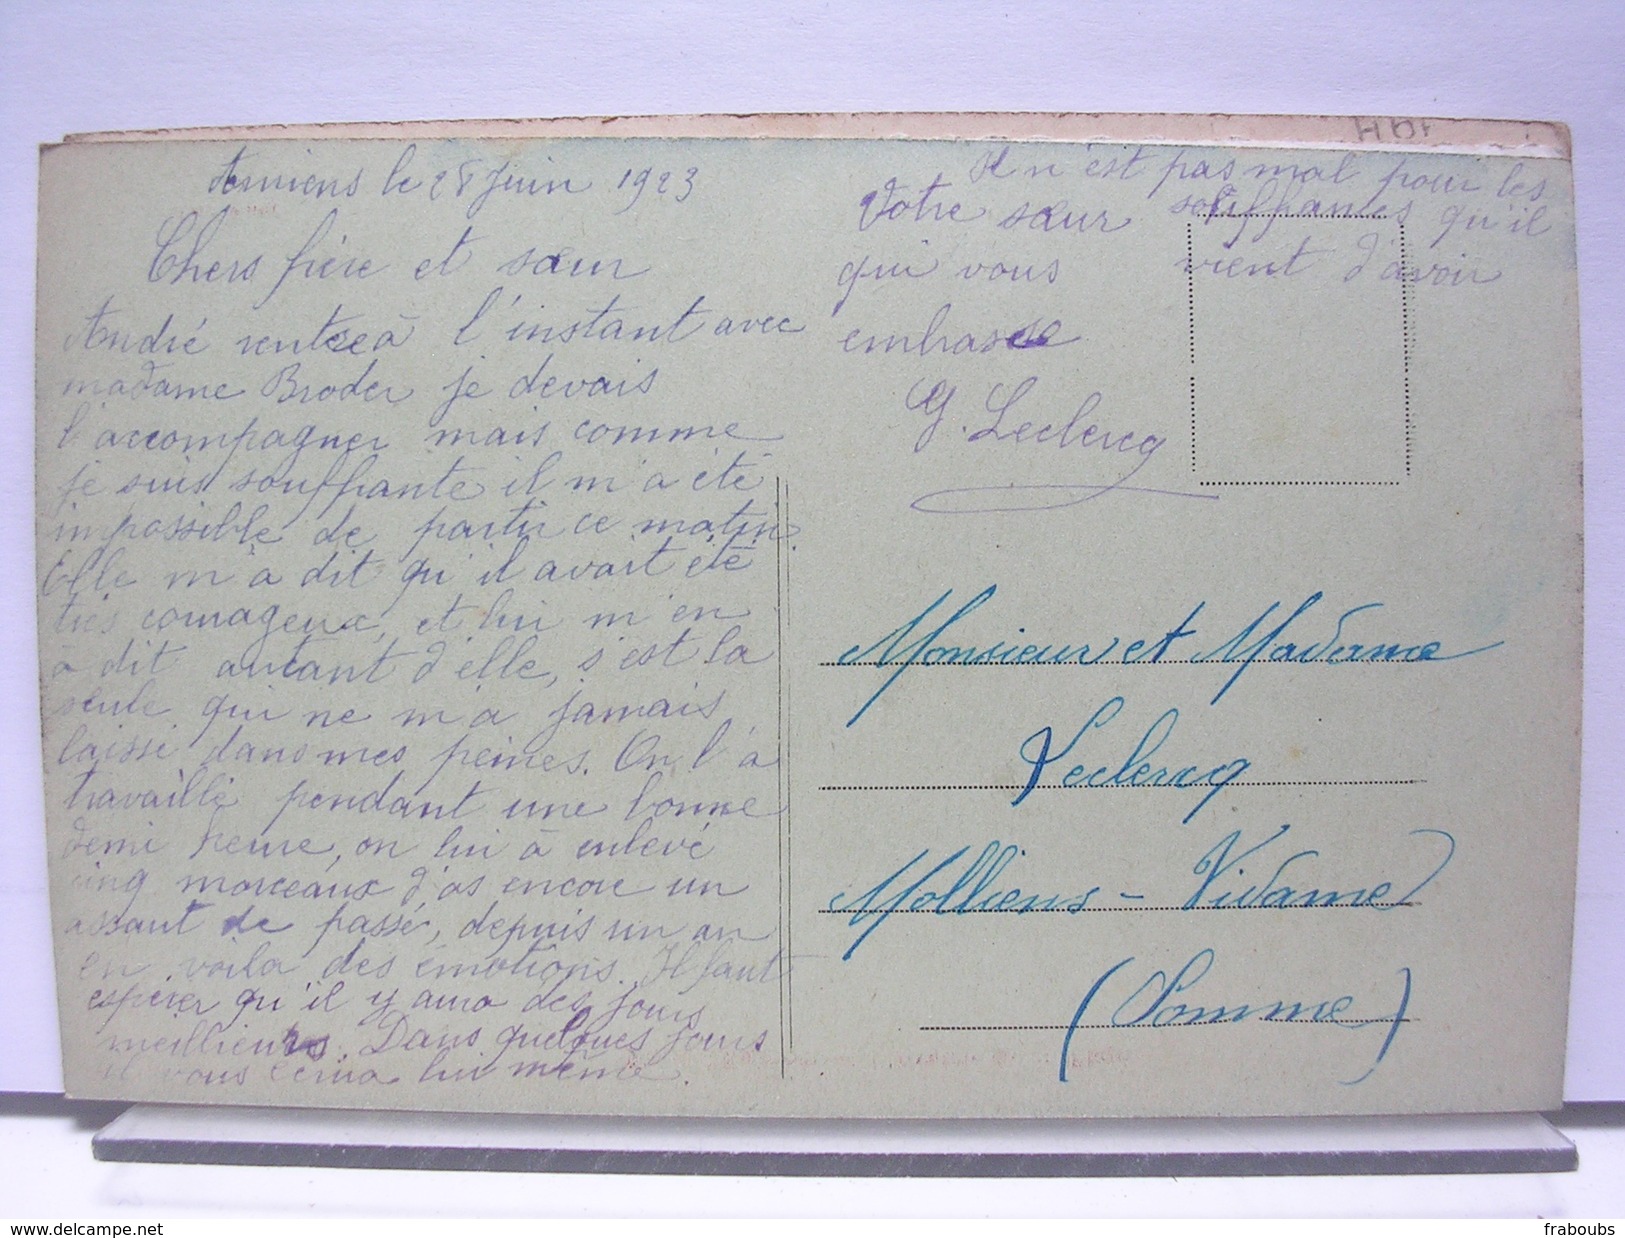 Amiens le 28 Juin 1923
Chers frère et sœur
André rentre à l'instant avec
madame Broder je devais
l'accompagner mais comme
je suis souffrante il m'a été
impossible de partir ce matin.
Elle m'a dit qu'il avait été
très courageux, et lui m'en
à dit autant d'elle, s'est la
seule qui ne m'a jamais
laissé dans mes peines. On l'à
travaillé pendant une bonne
demi heure, on lui à enlevé
cinq morceaux d'os encore un
assaut de passé, depuis un an
en voila des émotions. Il faut
espérer qu'il y aura des jours
meilleurs. Dans quelques jours
il vous écrira lui même.
Il n'est pas mal pour les
souffrances qu'il
vient d'avoir
Votre sœur
qui vous
embrasse
G. Leclercq
Monsieur et Madame
Leclercq
Molliens-Vidame
(Somme)
fraboubs
www.delcampe.net